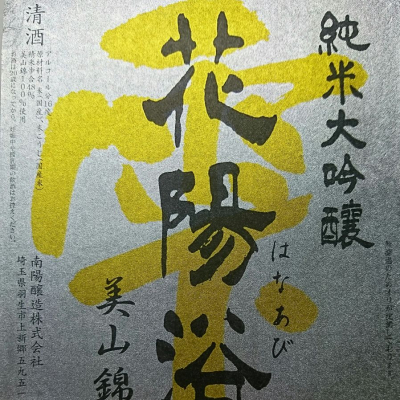 純米大吟醸
花陽浴
はなあび
美山錦
清酒
アルコール分16度
原材料名 米(国産)、米こうじ(国産米)
精米歩合48%
美山錦100%使用
南陽醸造株式会社
埼玉県羽生市上新郷五九五一